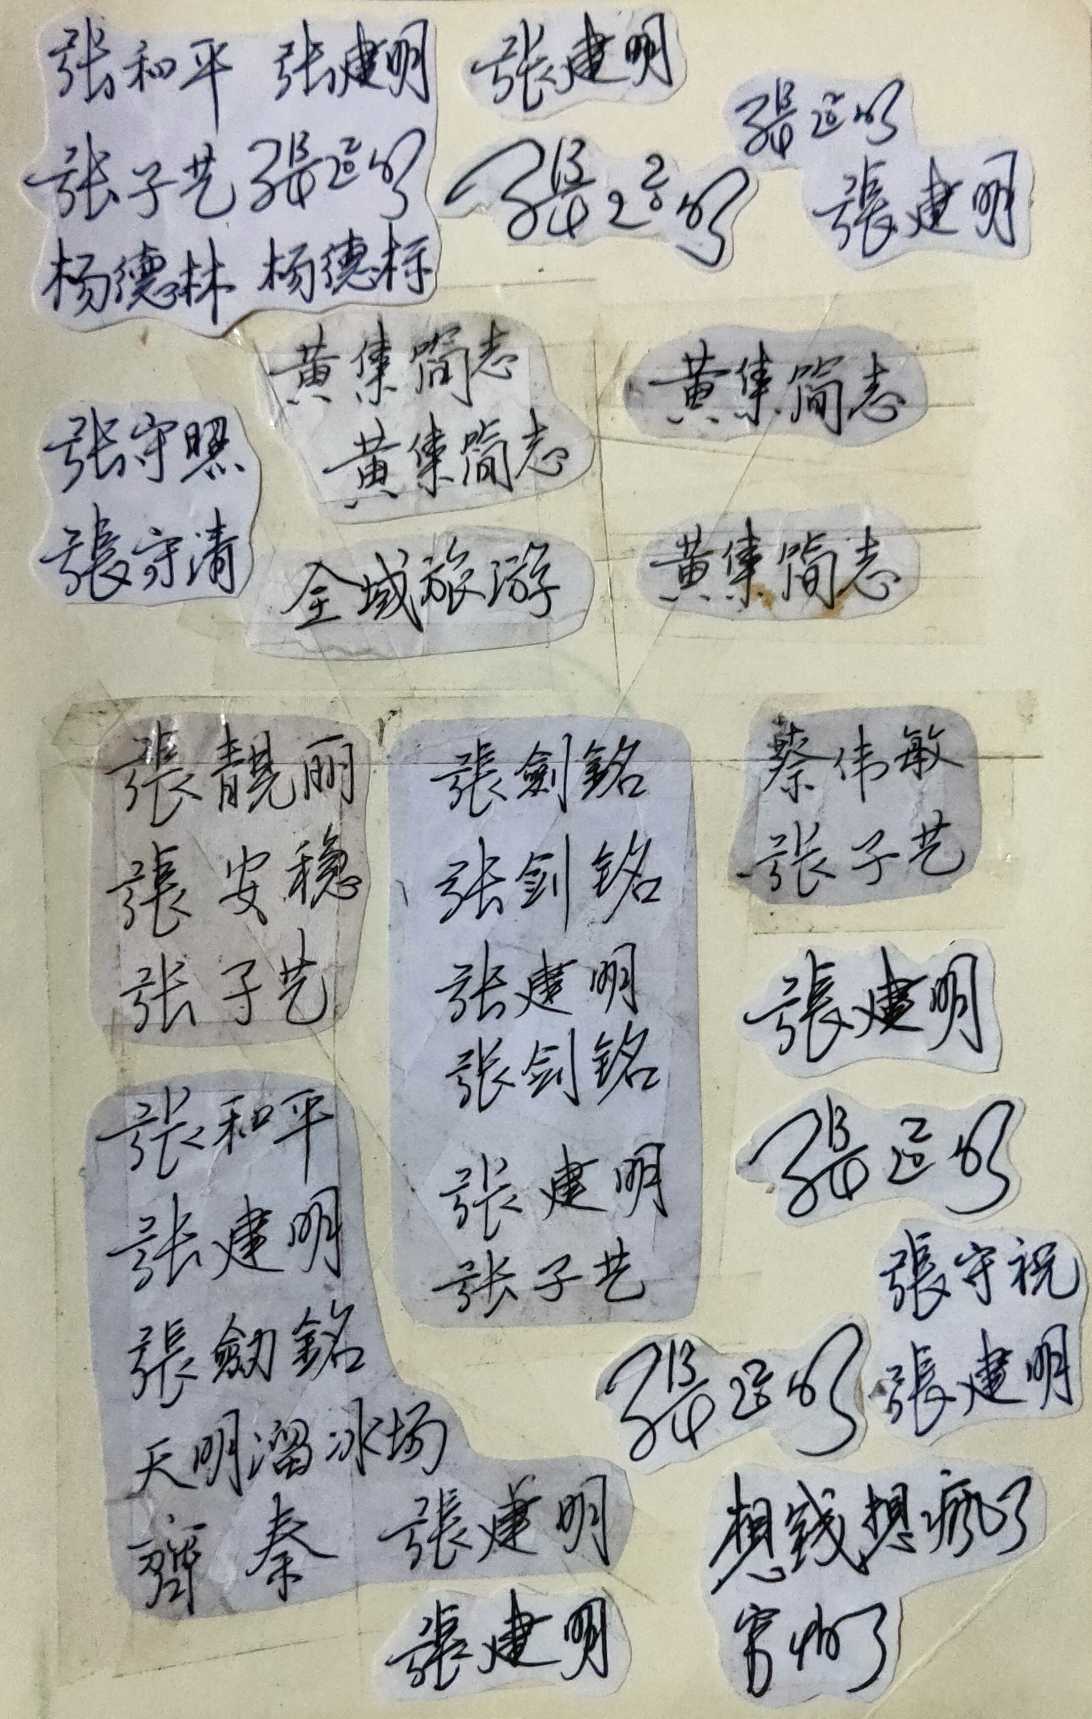 张和平 张建明
张子艺 張建明
杨德林 杨德标
張建明
張建明
張建明
張建明
黄集简志
黄集简志
黄集简志
张守照
張守清
全域旅游
黄集简志
張靚丽
張安穏
张子艺
張劍銘
张剑铭
张建明
张剑铭
張建明
张子艺
蔡伟敏
张子艺
張建明
張建明
张和平
张建明
張劔銘
天明溜冰场
齊秦 張建明
張建明
張守祝
張建明
張建明
想钱想疯了
穷怕了